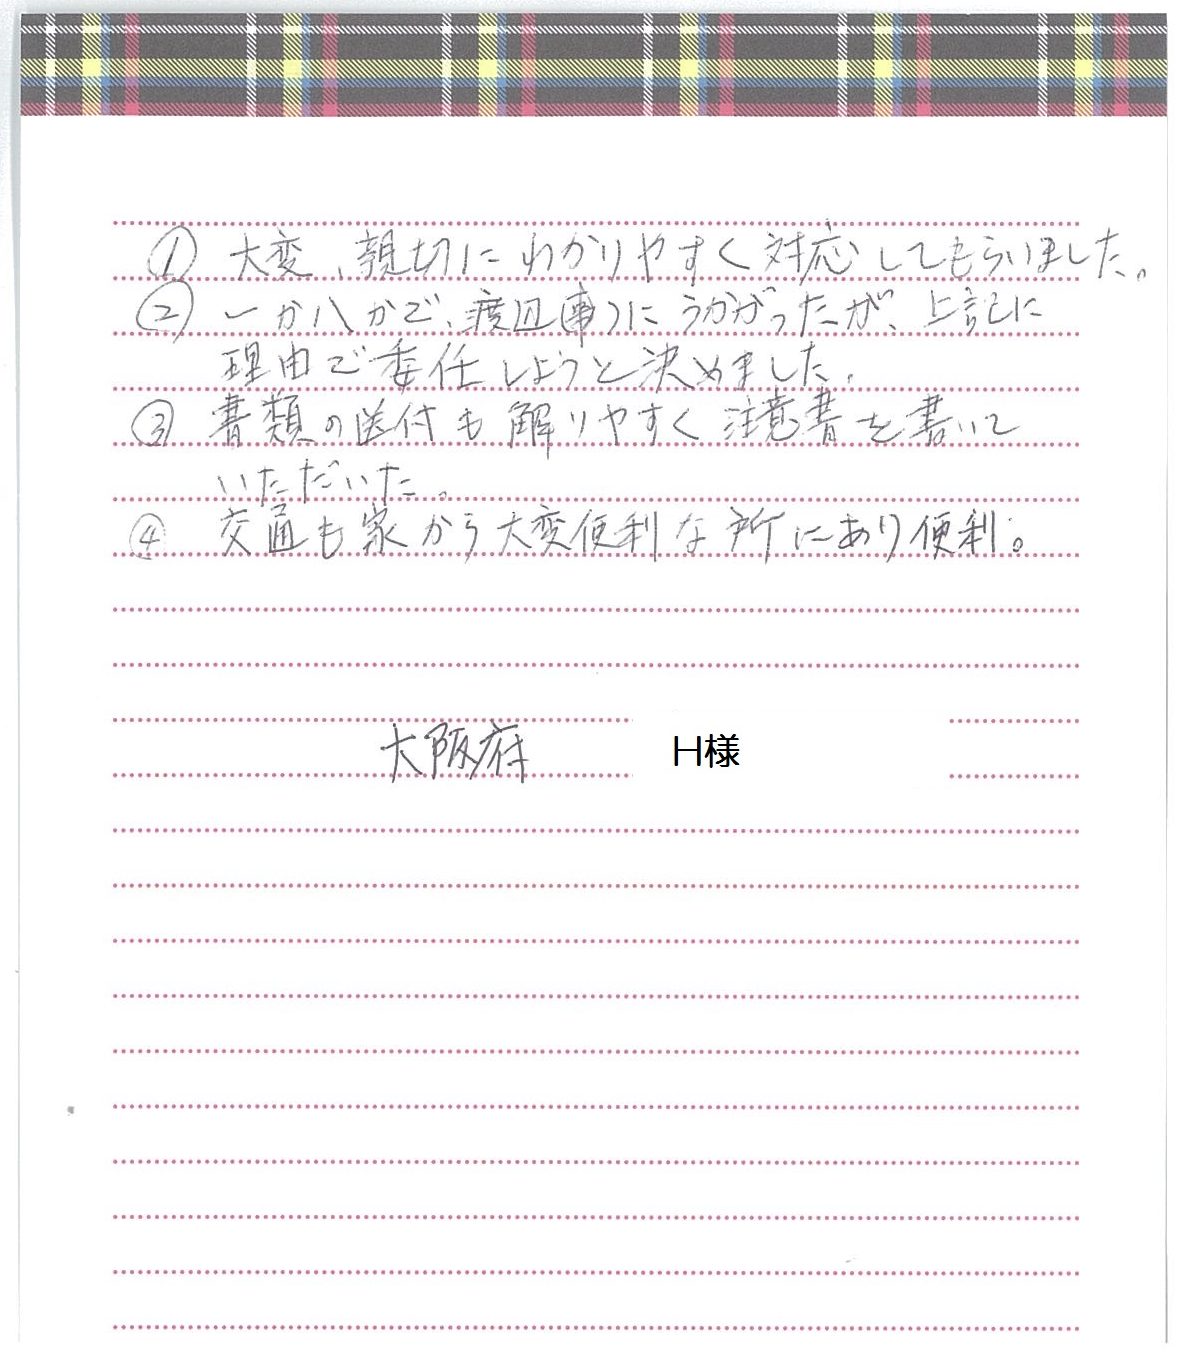 ① 大変、親切にわかりやすく対応してもらいました。
② 一か八かで、渡辺(事)にうかがったが、上記に
理由で委任しようと決めました。
③ 書類の送付も解りやすく注意書を書いて
いただいた。
④ 交通も家から大変便利な所にあり便利。
大阪府 H様